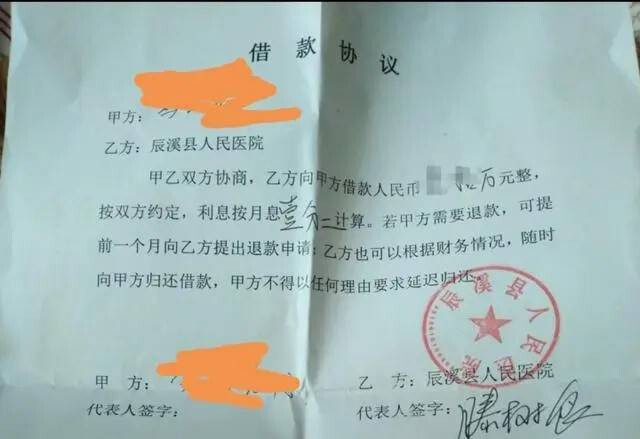 借款协议
甲方：
乙方：辰溪县人民医院
甲乙双方协商，乙方向甲方借款人民币 万元整，
按双方约定，利息按月息壹分二计算。若甲方需要退款，可提
前一个月向乙方提出退款申请；乙方也可以根据财务情况，随时
向甲方归还借款，甲方不得以任何理由要求延迟归还。
辰溪县人民医院
甲方： 乙方：辰溪县人民医院
代表人签字： 代表人签字：滕树良